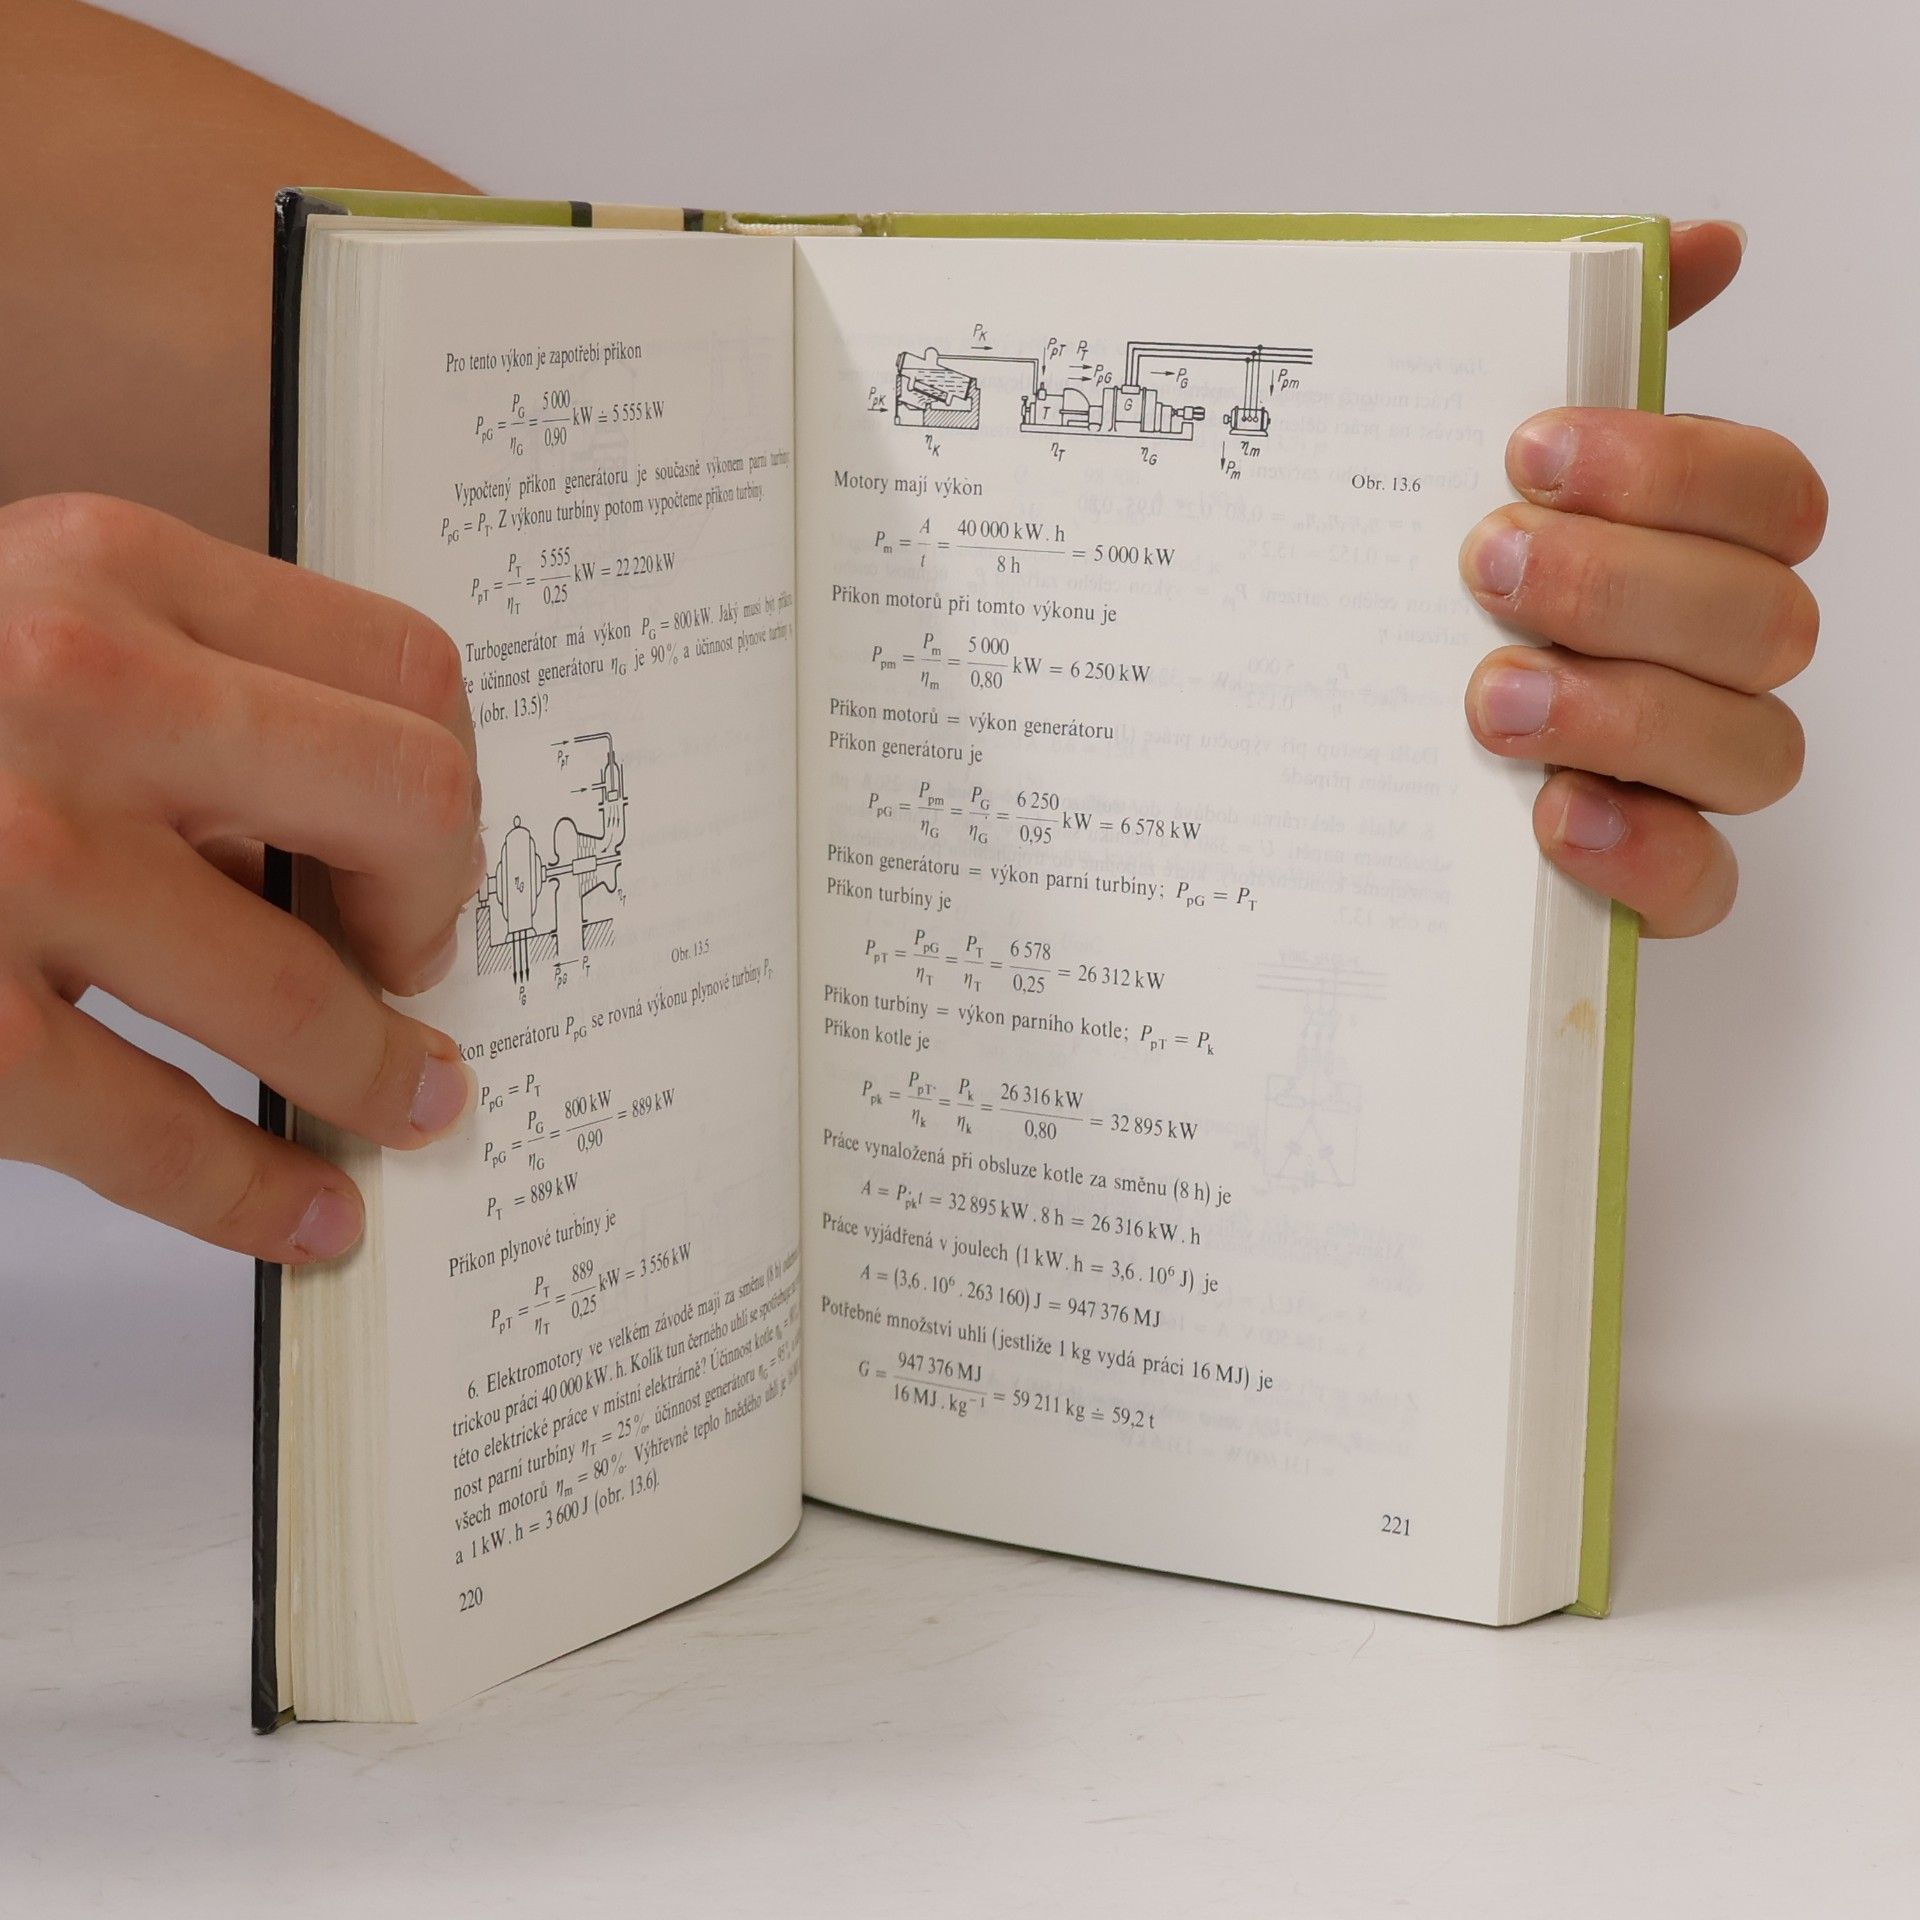 Pro tento výkon je zapotřebí příkon
P_pG = P_G / η_G = 5 000 / 0,90 kW ≐ 5 555 kW
Vypočtený příkon generátoru je současně výkonem parní turbíny
P_pG = P_T. Z výkonu turbíny potom vypočteme příkon turbíny.
P_pT = P_T / η_T = 5 555 / 0,25 kW = 22 220 kW
Turbogenerátor má výkon P_G = 800 kW. Jaký musí být
účinnost generátoru η_G je 90 % a účinnost plynové turbíny
(obr. 13.5)?
P_pT
η_G
η_T
P_G
P_pG
P_T
Obr. 13.5
generátoru P_pG se rovná výkonu plynové turbíny P_T
P_pG = P_T
P_pG = P_G / η_G = 800 kW / 0,90 = 889 kW
P_T = 889 kW
Příkon plynové turbíny je
P_pT = P_T / η_T = 889 / 0,25 kW = 3 556 kW
6. Elektromotory ve velkém závodě mají za směnu (8 h)
trickou práci 40 000 kW . h. Kolik tun černého uhlí se
této elektrické práce v místní elektrárně? Účinnost kotle η_k =
nost parní turbíny η_T = 25 %, účinnost generátoru η_G = 95 %,
všech motorů η_m = 80 %. Výhřevné teplo hnědého uhlí je
a 1 kW . h = 3 600 J (obr. 13.6).
220
P_K
P_pK
η_K
P_pT
P_T
P_pG
T
G
P_G
P_pm
η_T
η_G
η_m
P_m
Obr. 13.6
Motory mají výkon
P_m = A / t = 40 000 kW . h / 8 h = 5 000 kW
Příkon motorů při tomto výkonu je
P_pm = P_m / η_m = 5 000 / 0,80 kW = 6 250 kW
Příkon motorů = výkon generátoru
Příkon generátoru je
P_pG = P_pm / η_G = P_G / η_G = 6 250 / 0,95 kW = 6 578 kW
Příkon generátoru = výkon parní turbíny; P_pG = P_T
Příkon turbíny je
P_pT = P_pG / η_T = P_T / η_T = 6 578 / 0,25 = 26 312 kW
Příkon turbíny = výkon parního kotle; P_pT = P_k
Příkon kotle je
P_pk = P_pT / η_k = P_k / η_k = 26 316 kW / 0,80 = 32 895 kW
Práce vynaložená při obsluze kotle za směnu (8 h) je
A = P_pk t = 32 895 kW . 8 h = 26 316 kW . h
Práce vyjádřená v joulech (1 kW . h = 3,6 . 10⁶ J) je
A = (3,6 . 10⁶ . 263 160) J = 947 376 MJ
Potřebné množství uhlí (jestliže 1 kg vydá práci 16 MJ) je
G = 947 376 MJ / 16 MJ . kg⁻¹ = 59 211 kg ≐ 59,2 t
221